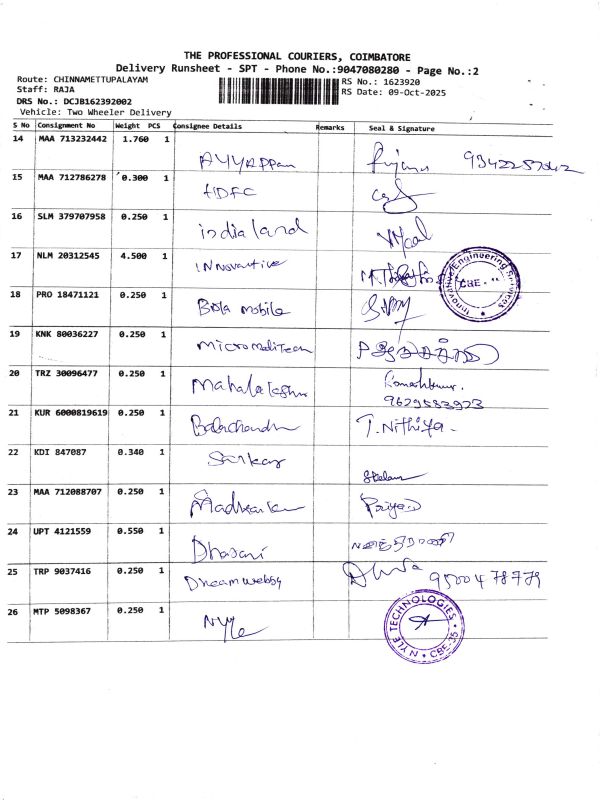 THE PROFESSIONAL COURIERS, COIMBATORE
Delivery Runsheet - SPT - Phone No.:9047080280 - Page No.:2
Route: CHINNAMETTUPALAYAM RS No.: 1623920
Staff: RAJA RS Date: 09-Oct-2025
DRS No.: DCJB162392002
Vehicle: Two Wheeler Delivery
S No Consignment No Weight PCS Consignee Details Remarks Seal & Signature
14 MAA 713232442 1.760 1 Ayyappan
15 MAA 712786278 0.300 1 HDFC
16 SLM 379707958 0.250 1 india land
17 NLM 20312545 4.500 1 innovative Innovative Engineering Services CBE
18 PRO 18471121 0.250 1 Bala mobile
19 KNK 80036227 0.250 1
20 TRZ 30096477 0.250 1 Mahalakshmi 9629583923
21 KUR 6000819619 0.250 1 T. Nithiya.
22 KDI 847087 0.340 1 Sarkar
23 MAA 712088707 0.250 1 Priya
24 UPT 4121559 0.550 1 Dharani
25 TRP 9037416 0.250 1 Dreamwebby 9500478779
26 MTP 5098367 0.250 1 Nyle NYLE TECHNOLOGIES CBE-35